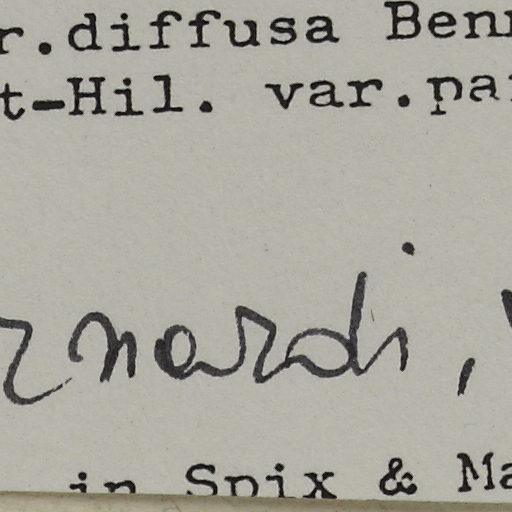 r.diffusa Benn
t-Hil. var.pa
rnardi,
in Spix & Ma